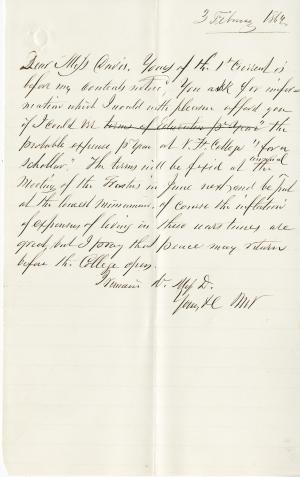 3 February 1864
Dear Miss Davis. Yours of the 1st Current is
before my contents notice, You ask for infor-
mation which I would with pleasure afford you
if I could vz terms of Education pr year" the
probable expense pr year at V. Fr. College "for a
schollar," The terms will be fixed at the annual
Meeting of the Trustees in June next, and be put
at the lowest minimum, of course the inflation
of expenses of living in these war times are
great, but I pray that peace may return
before the College open.
I remain Dr. Miss D.
Yours &c MV